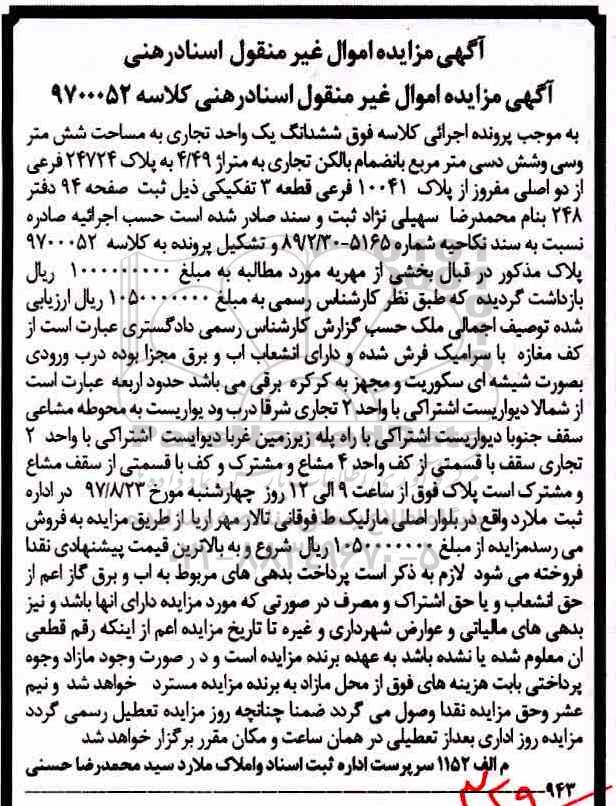 آگهی مزایده اموال غیر منقول اسنادرهنی
آگهی مزایده اموال غیر منقول اسنادرهنی کلاسه ۹۷۰۰۰۵۲
به موجب پرونده اجرائی کلاسه فوق ششدانگ یک واحد تجاری به مساحت شش متر
وسی وشش دسی متر مربع بانضمام بالکن تجاری به متراژ ۴/۴۹ به پلاک ۲۴۷۲۴ فرعی
از دو اصلی مفروز از پلاک ۱۰۰۴۱ فرعی قطعه ۳ تفکیکی ذیل ثبت صفحه ۹۴ دفتر
۲۴۸ بنام محمدرضا سهیلی نژاد ثبت و سند صادر شده است حسب اجرائیه صادره
نسبت به سند نکاحیه شماره ۵۱۶۵-۸۹/۲/۳۰ و تشکیل پرونده به کلاسه ۹۷۰۰۰۵۲
پلاک مذکور در قبال بخشی از مهریه مورد مطالبه به مبلغ ۱۰۰۰۰۰۰۰۰۰ ریال
بازداشت گردیده که طبق نظر کارشناس رسمی به مبلغ ۱۰۵۰۰۰۰۰۰۰ ریال ارزیابی
شده توصیف اجمالی ملک حسب گزارش کارشناس رسمی دادگستری عبارت است از
کف مغازه با سرامیک فرش شده و دارای انشعاب اب و برق مجزا بوده درب ورودی
بصورت شیشه ای سکوریت و مجهز به کرکره برقی می باشد حدود اربعه عبارت است
از شمالا دیواریست اشتراکی با واحد ۲ تجاری شرقا درب ود یواریست به محوطه مشاعی
سقف جنوبا دیواریست اشتراکی با راه پله زیرزمین غربا دیوایست اشتراکی با واحد ۲
تجاری سقف با قسمتی از کف واحد ۴ مشاع و مشترک و کف با قسمتی از سقف مشاع
و مشترک است پلاک فوق از ساعت ۹ الی ۱۲ روز چهارشنبه مورخ ۹۷/۸/۲۳ در اداره
ثبت ملارد واقع در بلوار اصلی مارلیک ط فوقانی تالار مهر اریا از طریق مزایده به فروش
می رسدمزایده از مبلغ ۱۰۵۰۰۰۰۰۰۰ ریال شروع و به بالاترین قیمت پیشنهادی نقدا
فروخته می شود لازم به ذکر است پرداخت بدهی های مربوط به اب و برق گاز اعم از
حق انشعاب و یا حق اشتراک و مصرف در صورتی که مورد مزایده دارای انها باشد و نیز
بدهی های مالیاتی و عوارض شهرداری و غیره تا تاریخ مزایده اعم از اینکه رقم قطعی
ان معلوم شده یا نشده باشد به عهده برنده مزایده است و د ر صورت وجود مازاد وجوه
پرداختی بابت هزینه های فوق از محل مازاد به برنده مزایده مسترد خواهد شد و نیم
عشر وحق مزایده نقدا وصول می گردد ضمنا چنانچه روز مزایده تعطیل رسمی گردد
مزایده روز اداری بعداز تعطیلی در همان ساعت و مکان مقرر برگزار خواهد شد
م الف ۱۱۵۲ سرپرست اداره ثبت اسناد واملاک ملارد سید محمدرضا حسنی
۹۴۳